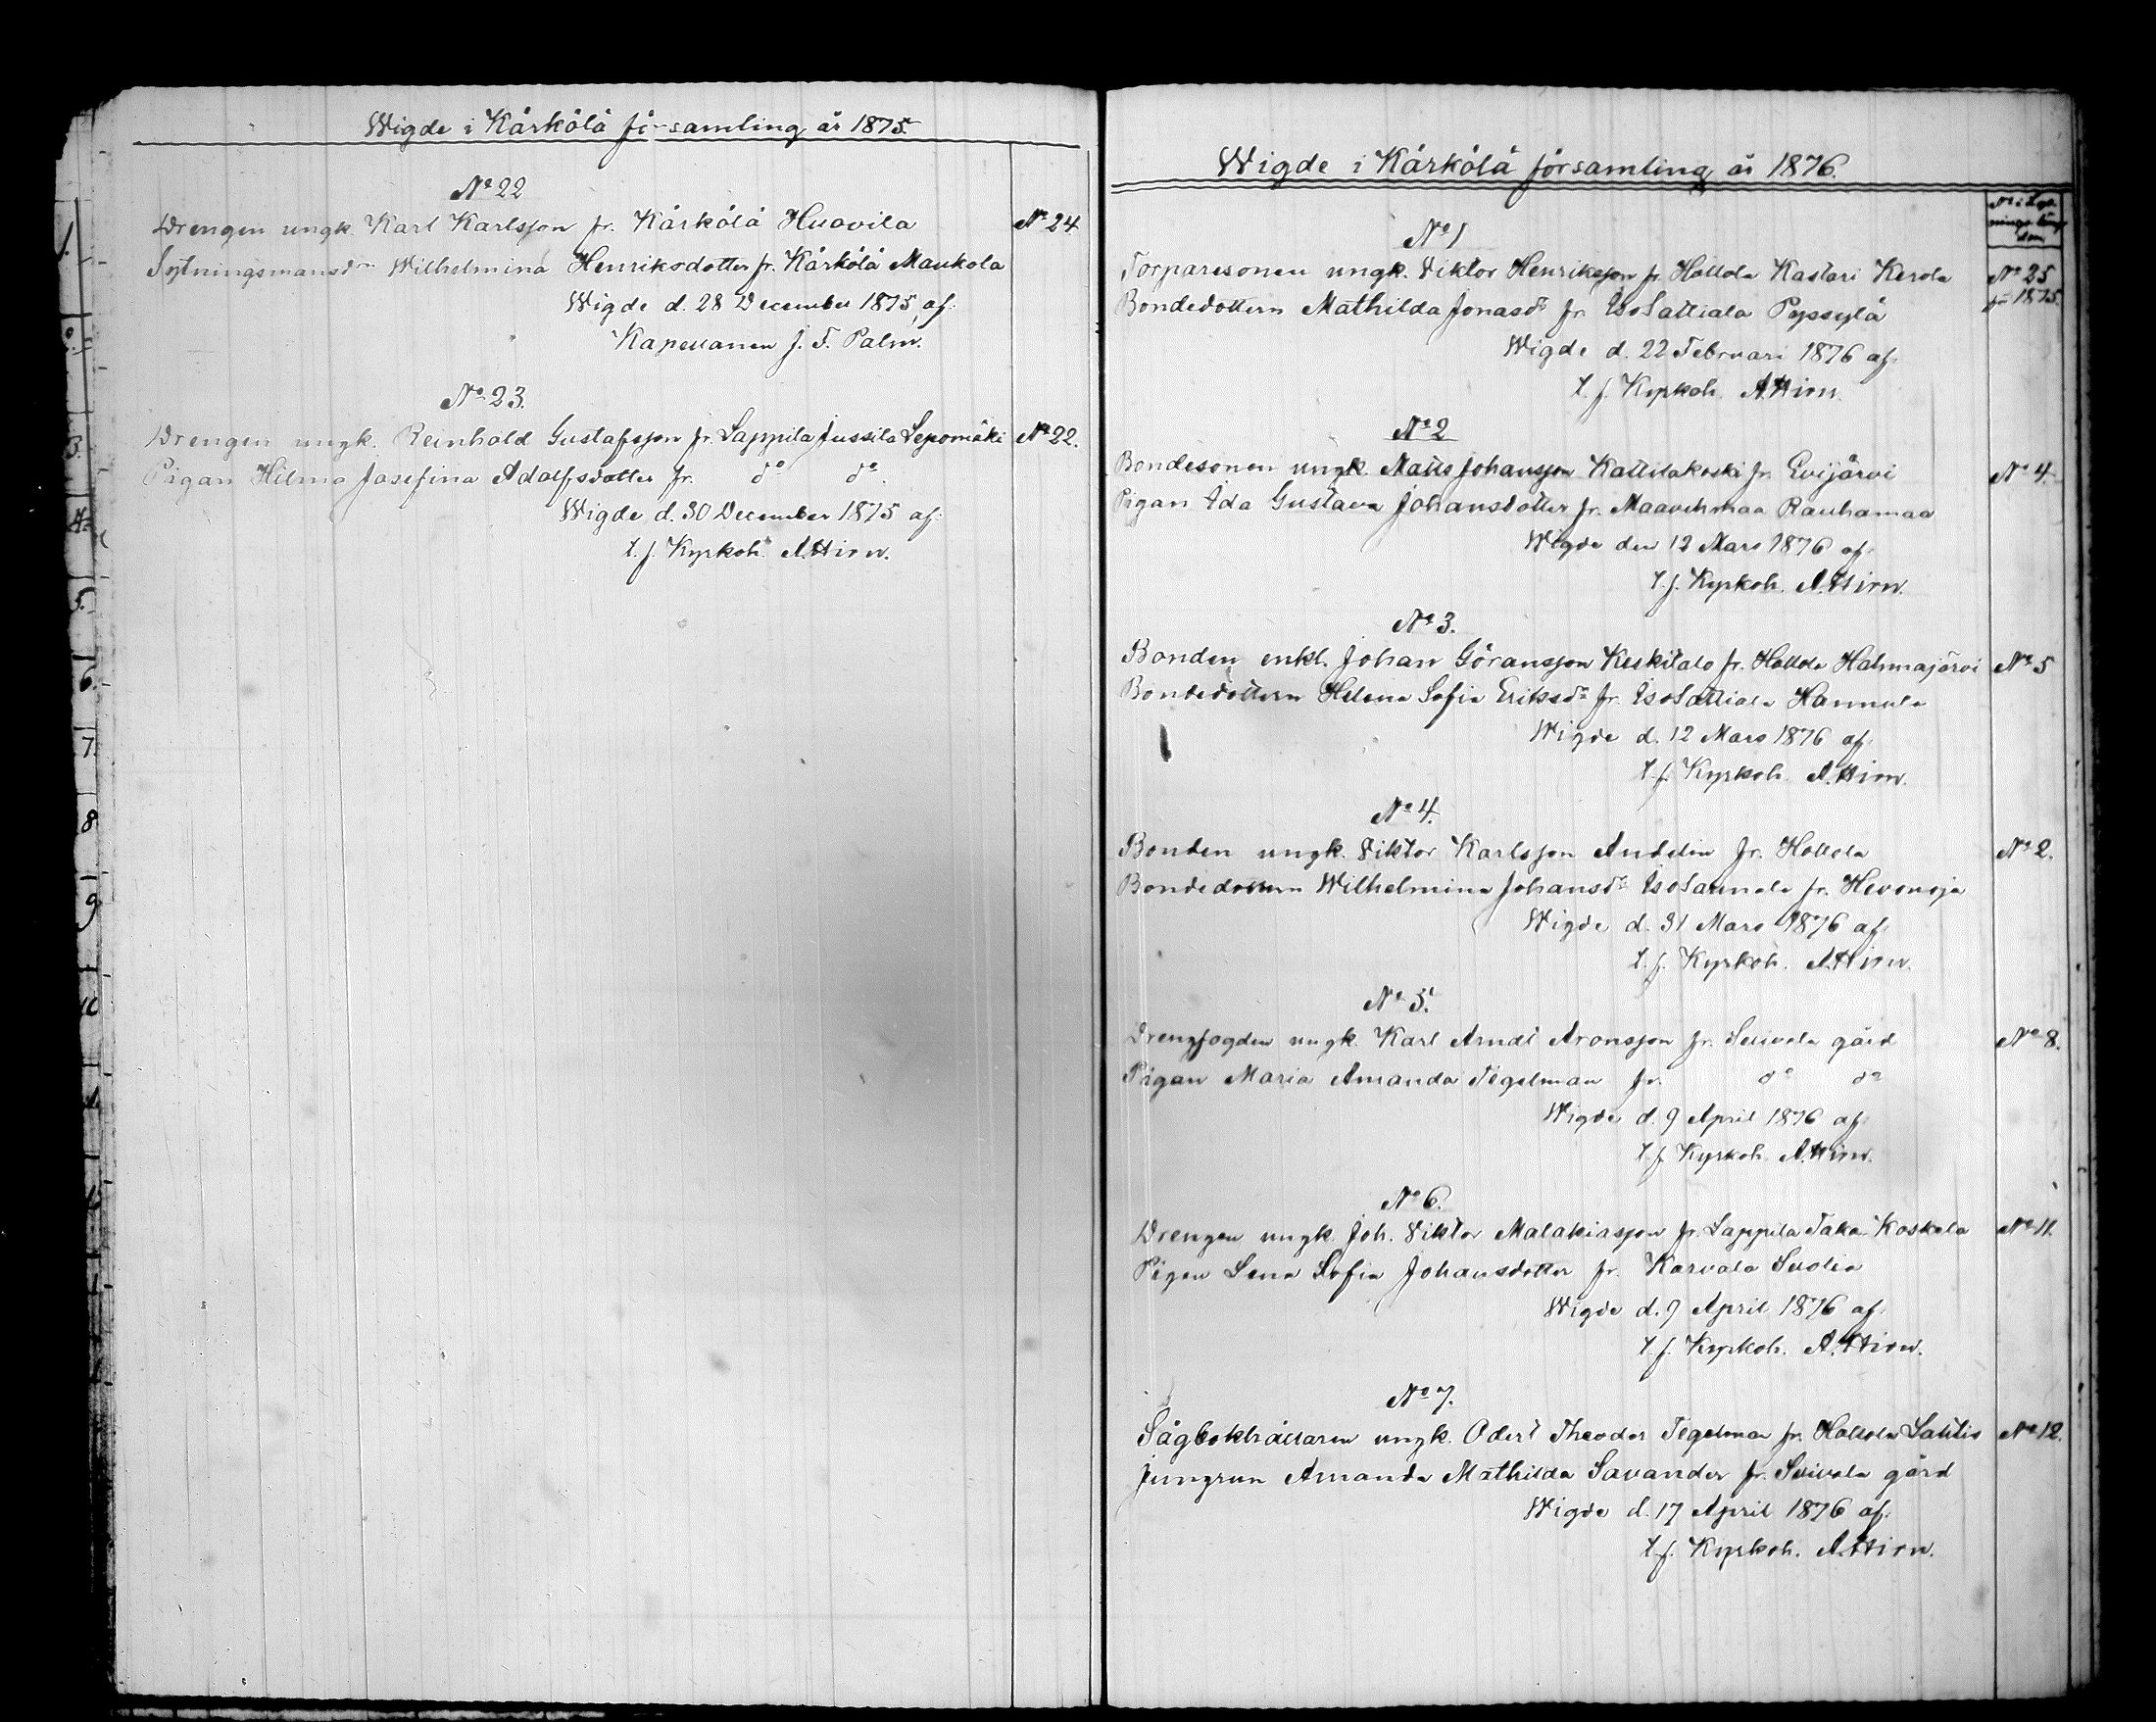 Wigde i Kärkölä församling år 1875.
No 22
Drengen ungk. Karl Karlsson fr. Kärkölä Huovila No 24
Sytningsmansdr Wilhelmina Henriksdotter fr. Kärkölä Maukola
Wigde d. 28 December 1875, af:
Kapellanen J. F. Palm.
No 23.
Drengen ungk. Reinhold Gustafsson fr. Lappila Jussila Lepomäki No 22.
Pigan Hilma Josefina Adolfsdotter fr. do do.
Wigde d. 30 December 1875 af:
t. f. Kyrkoh. A. Hirn.
Wigde i Kärkölä församling år 1876.
No i Lysningslängden
No 1
Torparesonen ungk. Viktor Henriksson fr. Hollola Kastari Kerola No 25
för 1875.
Bondedottern Mathilda Jonasdr fr. IsoSattiala Pyssylä
Wigde d. 22 Februari 1876 af:
t. f. Kyrkoh. A. Hirn.
No 2
Bondesonen ungk. Matts Johansson Kattilakoski fr. Evijärvi No 4.
Pigan Ida Gustava Johansdotter fr. Maavehmaa Rauhamaa
Wigde den 12 Mars 1876 af:
t. f. Kyrkoh. A. Hirn.
No 3.
Bonden enkl. Johan Göransson Keskitalo fr. Hollola Hahmajärvi No 5
Bondedottern Helena Sofia Eriksdr fr. IsoSattiala Hannula
Wigde d. 12 Mars 1876 af:
t. f. Kyrkoh. A. Hirn.
No 4.
Bonden ungk. Viktor Karlsson Anddin fr. Hollola No 2.
Bondedottern Wilhelmina Johansdr IsoSannala fr. Hevonoja
Wigde d. 31 Mars 1876 af:
t. f. Kyrkoh. A. Hirn.
No 5.
Drengfogden ungk. Karl Arndt Aronsson fr. Suivola gård No 8.
Pigan Maria Amanda Tegelman fr. do do
Wigde d. 9 April 1876 af:
t. f. Kyrkoh. A. Hirn.
No 6.
Drengen ungk. Joh. Viktor Malakiasson fr. Lappila Taka-Koskela No 11.
Pigan Lena Sofia Johansdotter fr. Karvala Suolia
Wigde d. 9 April 1876 af:
t. f. Kyrkoh. A. Hirn.
No 7.
Sågbokhållaren ungk. Odert Theodor Tegelman fr. Hollola Lahtis No 12.
Jungfrun Amanda Mathilda Savander fr. Suivola gård
Wigde d. 17 April 1876 af:
t. f. Kyrkoh. A. Hirn.